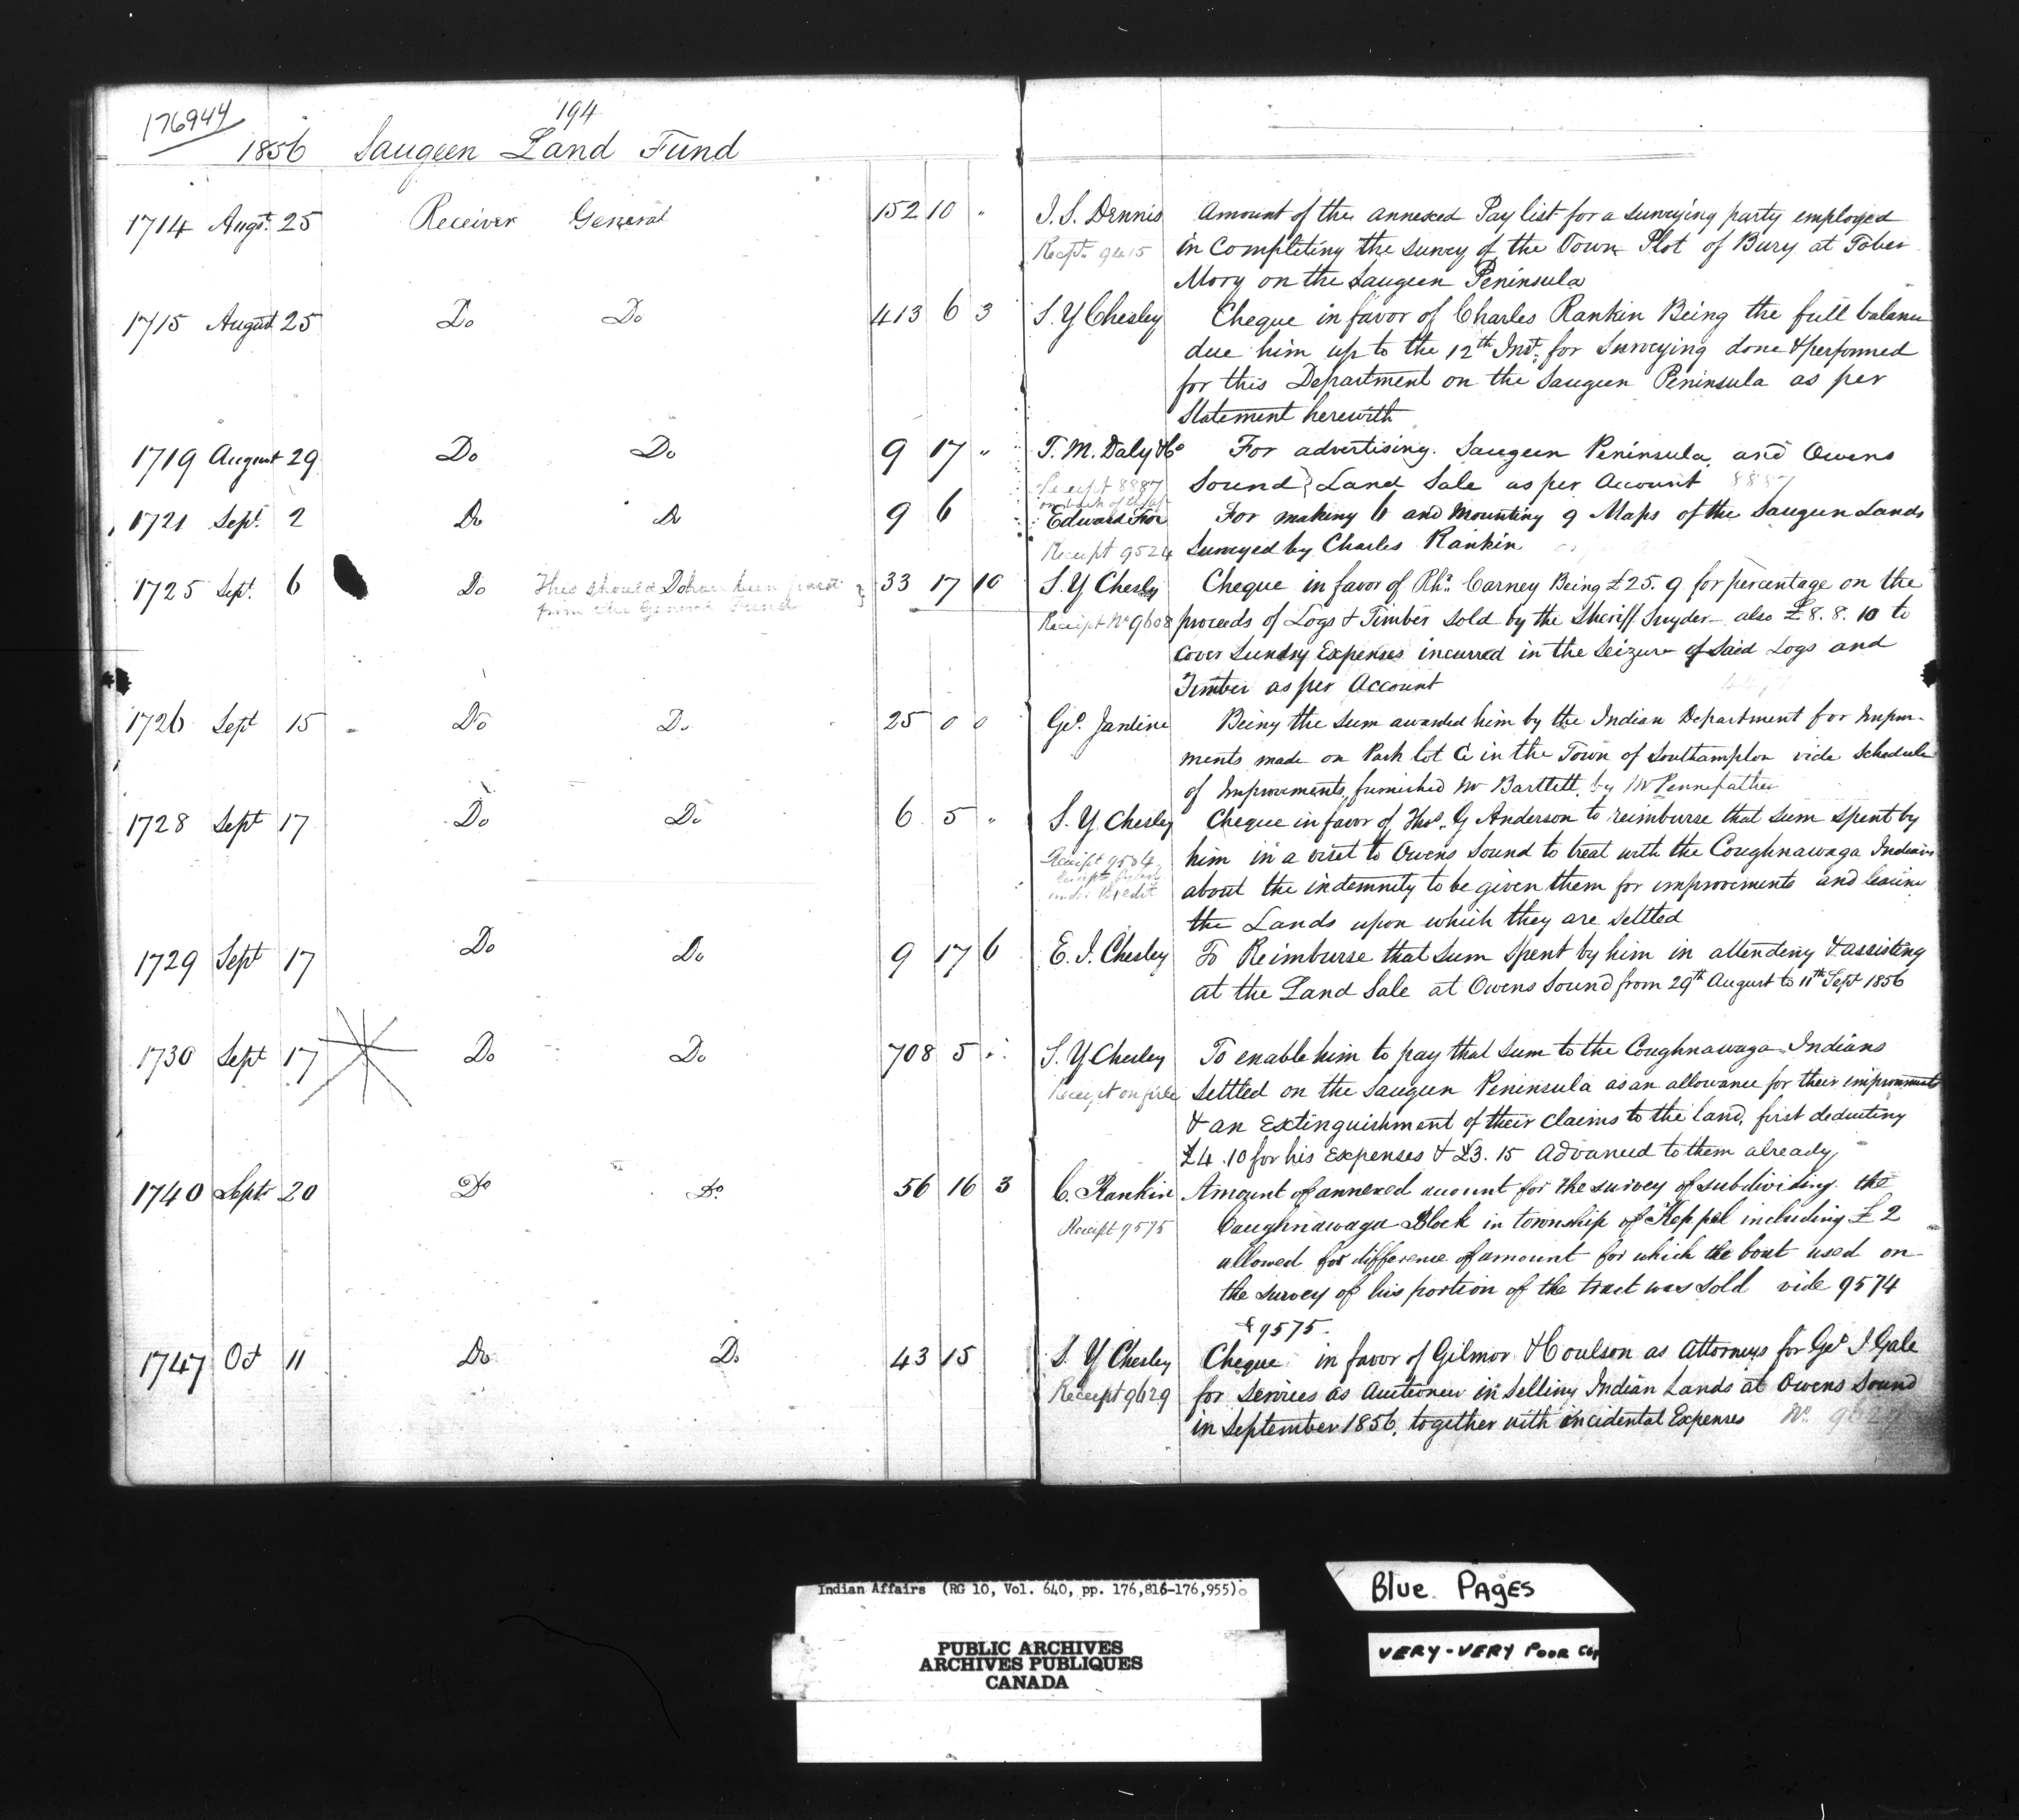 176944
194
1856 Saugeen Land Fund
1714 Augst. 25 Receiver General 152 10 " J. S. Dennis Amount of the annexed Pay list for a surveying party employed
Recpt. 9415 in Completing the survey of the Town Plot of Bury at Tober
Mory on the Saugeen Peninsula
1715 August 25 Do Do 413 6 3 S. Y Chesley Cheque in favor of Charles Rankin Being the full balance
due him up to the 12th Inst. for Surveying done & performed
for this Department on the Saugeen Peninsula as per
Statement herewith
1719 August 29 Do Do 9 17 " T. M. Daly & Co For advertising Saugeen Peninsula and Owens
Receipt 8887 Sound Land Sale as per Account 8887
on back of
1721 Sept. 2 Do Do 9 6 Edward For making 6 and Mounting 9 Maps of the Saugeen Lands
Receipt 9524 Surveyed by Charles Rankin
1725 Sept. 6 Do This should have been Do 33 17 10 S. Y Chesley Cheque in favor of Rhd. Carney Being £25. 9 for percentage on the
from the General Fund
Receipt No 9608 proceeds of Logs & Timber sold by the Sheriff Snyder - also £8. 8. 10 to
cover Sundry Expenses incurred in the Seizure of Said Logs and
Timber as per Account
1726 Sept 15 Do Do 25 0 0 Geo. Jardine Being the sum awarded him by the Indian Department for Improv-
ments made on Park lot C in the Town of Southampton vide Schedule
of Improvements, furnished Mr Bartlett, by Mr Pennefather
1728 Sept 17 Do Do 6 5 " S. Y. Chesley Cheque in favor of Thos. G Anderson to reimburse that sum spent by
Receipt 9504 him in a visit to Owens Sound to treat with the Coughnawaga Indians
under Credit about the indemnity to be given them for improvements and leaving
the Lands upon which they are settled
1729 Sept 17 Do Do 9 17 6 E. J. Chesley To Reimburse that sum spent by him in attending & assisting
at the Land Sale at Owens Sound from 29th August to 11th Sept 1856
1730 Sept 17 Do Do 708 5 " S. Y Chesley To enable him to pay that sum to the Coughnawaga Indians
Receipt on file settled on the Saugeen Peninsula as an allowance for their improvements
& an Extinguishment of their Claims to the land, first deducting
£4. 10 for his Expenses & £3. 15 Advanced to them already
1740 Sept 20 Do Do 56 16 3 C. Rankin Amount of annexed account for the survey of subdividing the
Receipt 9575 Caughnawaga Block in township of Keppel including £2
allowed for difference of amount for which the boat used on
the survey of his portion of the tract was sold vide 9574
& 9575.
1747 Oct 11 Do Do 43 15 S. Y Chesley Cheque in favor of Gilmor & Coulson as Attorneys for Geo J Gale
Receipt 9629 for Services as Auctioneer in Selling Indian Lands at Owens Sound
in September 1856, together with incidental Expenses No. 9629
Indian Affairs (RG 10, Vol. 640, pp. 176,816-176,955)
PUBLIC ARCHIVES
ARCHIVES PUBLIQUES
CANADA
Blue PAgES
VERY-VERY POOR